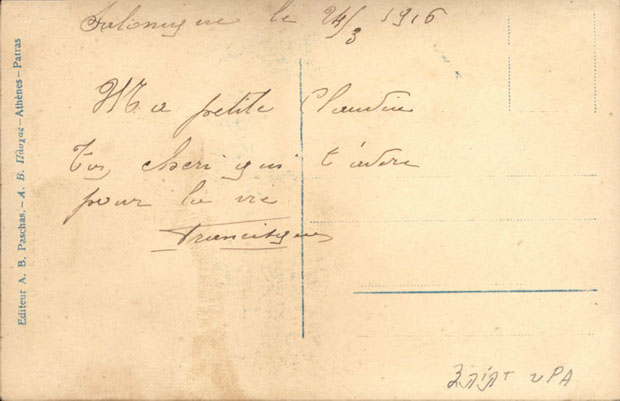 Salonique le 24/3 1916
Ma petite Claudine
Ton cheri qui t'adore
pour la vie
Francisque
Editeur A. B. Paschas.—Α. Β. Πάσχας—Athènes—Patras